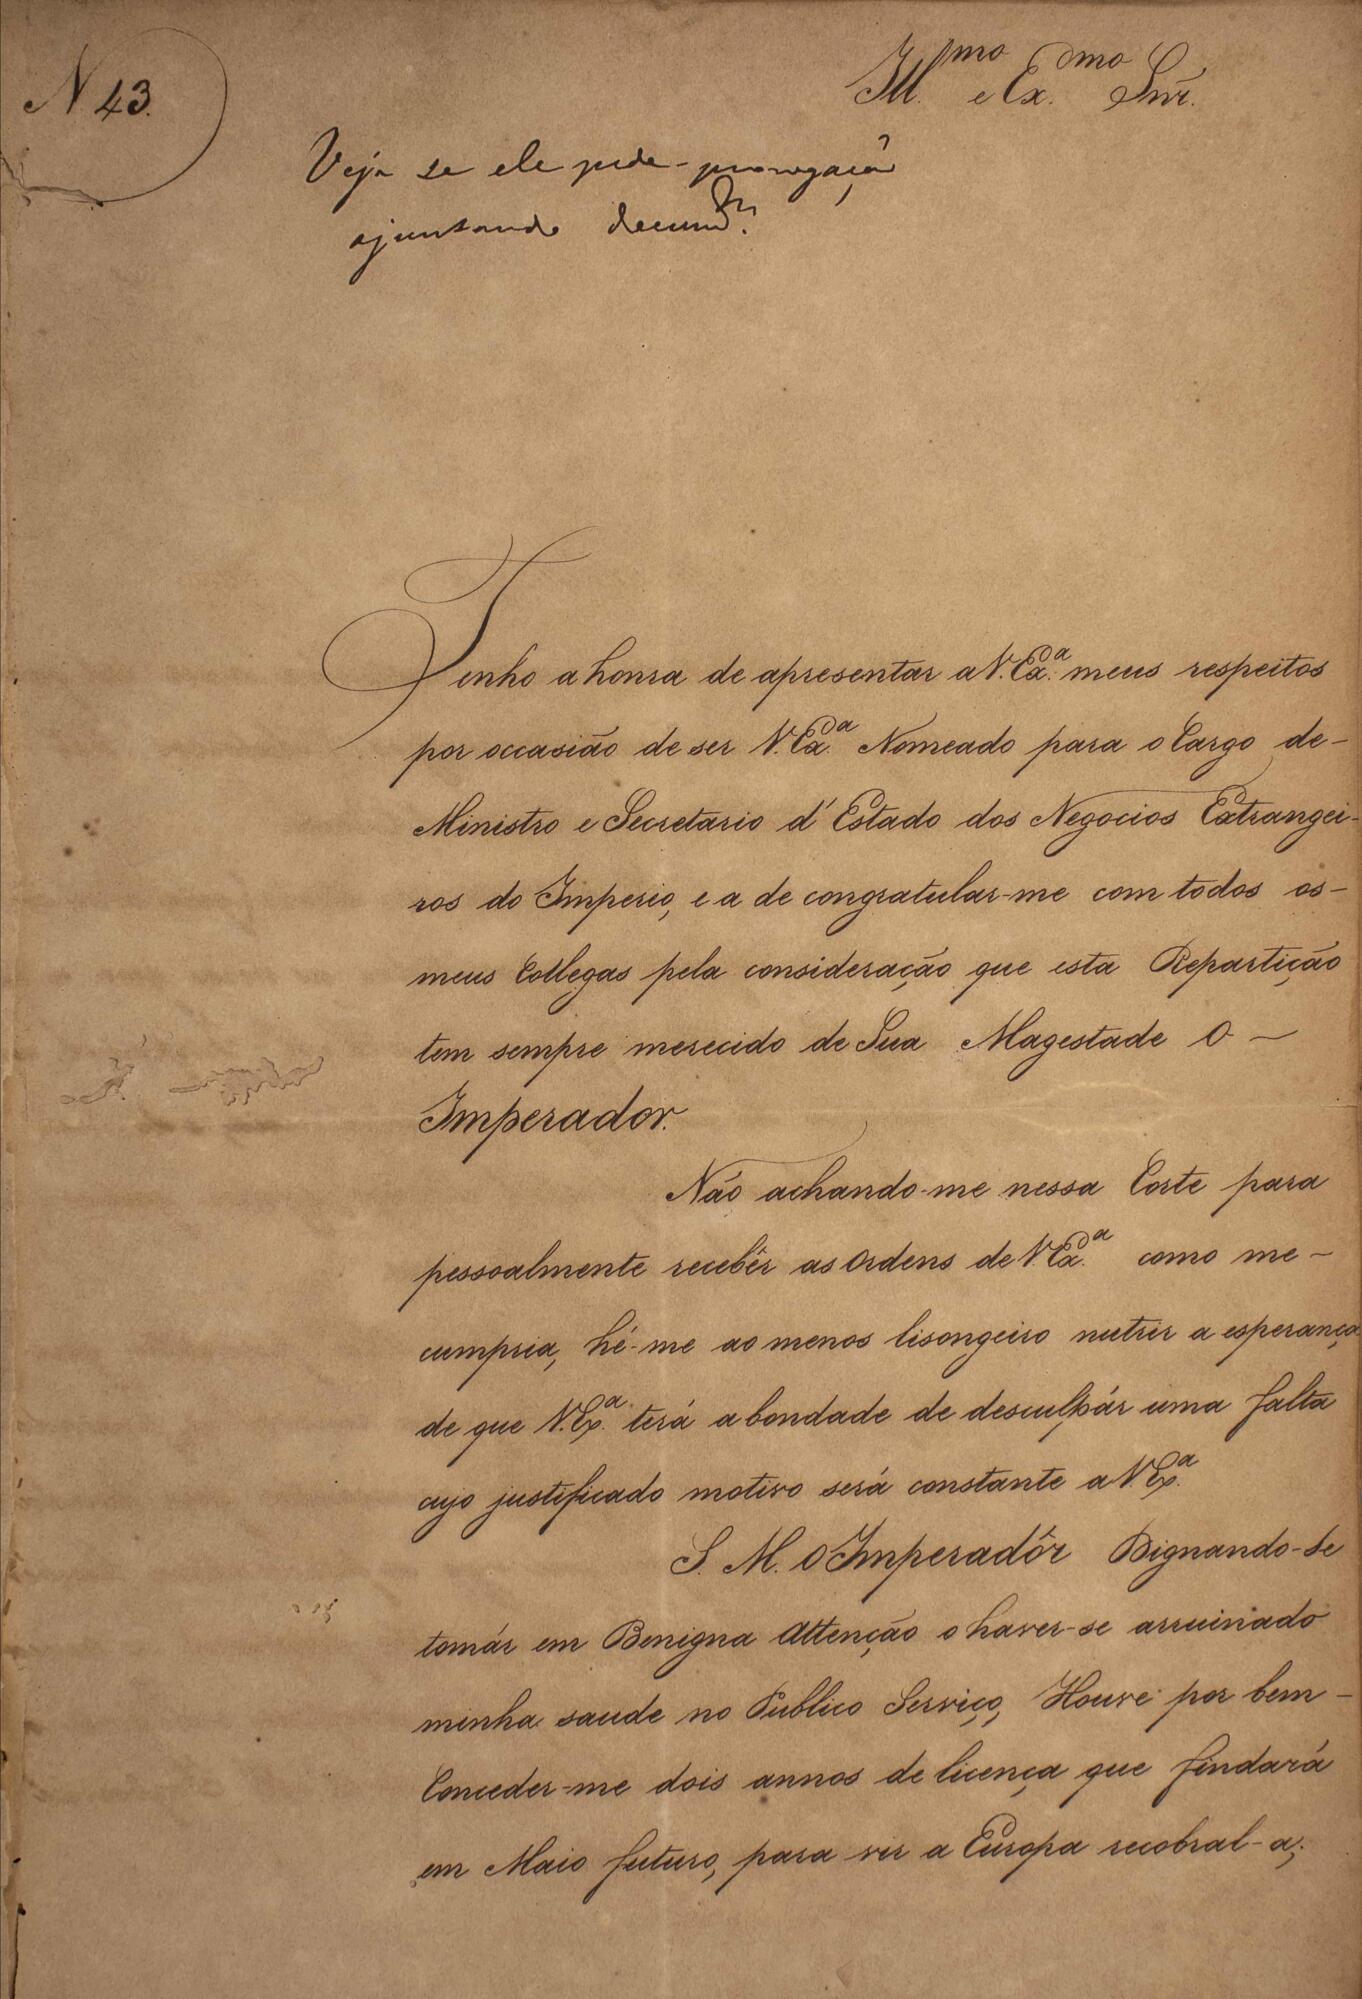 N 43.
Ill.mo e Ex.mo Snr.
Veja se ele pede prorogação
ajuntando docum.tos
Tenho a honra de apresentar a V. Ex.a meus respeitos
por occasião de ser V. Ex.a Nomeado para o Cargo de-
Ministro e Secretario d'Estado dos Negocios Extrangei-
ros do Imperio, e a de congratular-me com todos os-
meus Collegas pela consideração que esta Repartição
tem sempre merecido de Sua Magestade O-
Imperador.
Não achando-me nessa Corte para
pessoalmente recebêr as Ordens de V. Ex.a como me-
cumpria, hé-me ao menos lisongeiro nutrir a esperança
de que V. Ex.a terá a bondade de desculpár uma falta
cujo justificado motivo será constante a V. Ex.a
S. M. O Imperadôr Dignando-Se
tomár em Benigna Attenção o haver-se arruinado
minha saude no Publico Serviço, Houve por bem-
Conceder-me dois annos de licença que findará
em Maio futuro, para vir a Europa recobral-a;